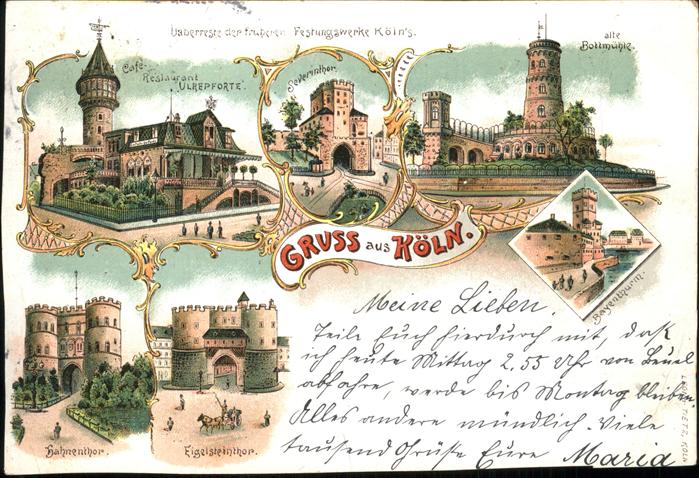 Ueberreste der früheren Festungswerke Köln's.
Café-
Restaurant
"ULREPFORTE".
Severinthor.
alte
Bottmühle.
GRUSS aus KÖLN.
Bayenthurm.
Hahnenthor.
Eigelsteinthor.
Meine Lieben.
Teile Euch hierdurch mit, daß
ich heute Mittag 2.55 Uhr von Beuel
abfahre, werde bis Montag bleiben.
Alles andere mündlich. Viele
tausend Grüße Eure Maria
KÖLN